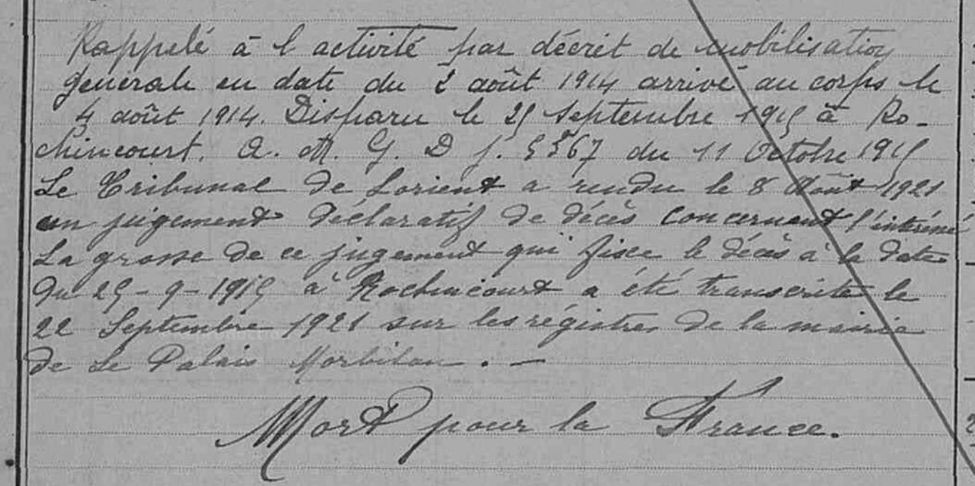 Rappelé à l'activité par décret de mobilisation
générale en date du 2 août 1914 arrivé au corps le
4 août 1914. Disparu le 25 septembre 1915 à Ro-
chincourt. A. M. G. D f. 5567 du 11 Octobre 1915
Le Tribunal de Lorient a rendu le 8 Août 1921
un jugement déclaratif de décès concernant l'intéressé
La grosse de ce jugement qui fixe le décès à la date
du 25-9-1915 à Rochincourt a été transcrite le
22 Septembre 1921 sur les registres de la mairie
de Le Palais Morbihan. —
Mort pour la France.